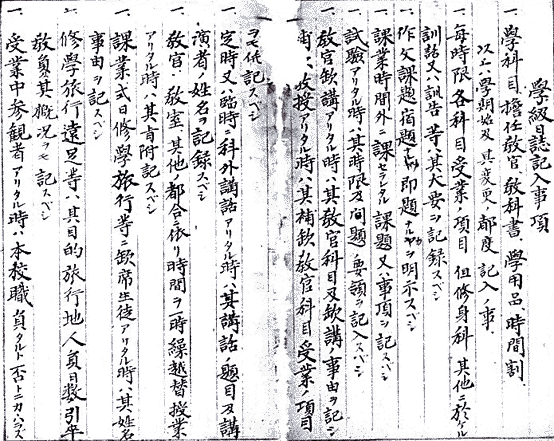 学級日誌記入事項
一、学科目、擔任教官、教科書、学用品、時間割
以上ハ学期始及其変更ノ都度記入ノ事
一、毎時限各科目受業ノ項目 但修身科其他ニ於ケル
訓話又ハ訓告等ハ其大要ヲ記録スベシ
一、作文課題宿題ナルヤ即題ナルヤヲ明示スベシ
一、課業時間外ニ課セラレタル課題又ハ事項ヲ記スベシ
一、試験アリタル時ハ其時限及問題ノ要領ヲ記入スベシ
一、教官欠講アリタル時ハ其教官科目及欠講ノ事由ヲ記シ
補欠教授アリタル時ハ其補欠教官科目受業ノ項目
ヲモ併記スベシ
一、定時又ハ臨時ニ科外講話アリタル時ハ其講話ノ題目及講
演者ノ姓名ヲ記録スベシ
一、教官、教室其他都合ニ依リ時間ヲ一時繰越替授業
アリタル時ハ其旨附記スベシ
一、課業式日修學旅行等ニ欠席生徒アリタル時ハ其姓名
事由ヲ記スベシ
一、修學旅行遠足等ハ其目的旅行地人員日数引率
教員其概况ヲモ記スベシ
一、受業中参観者アリタル時ハ本校職員タルト否トニカヽハラズ